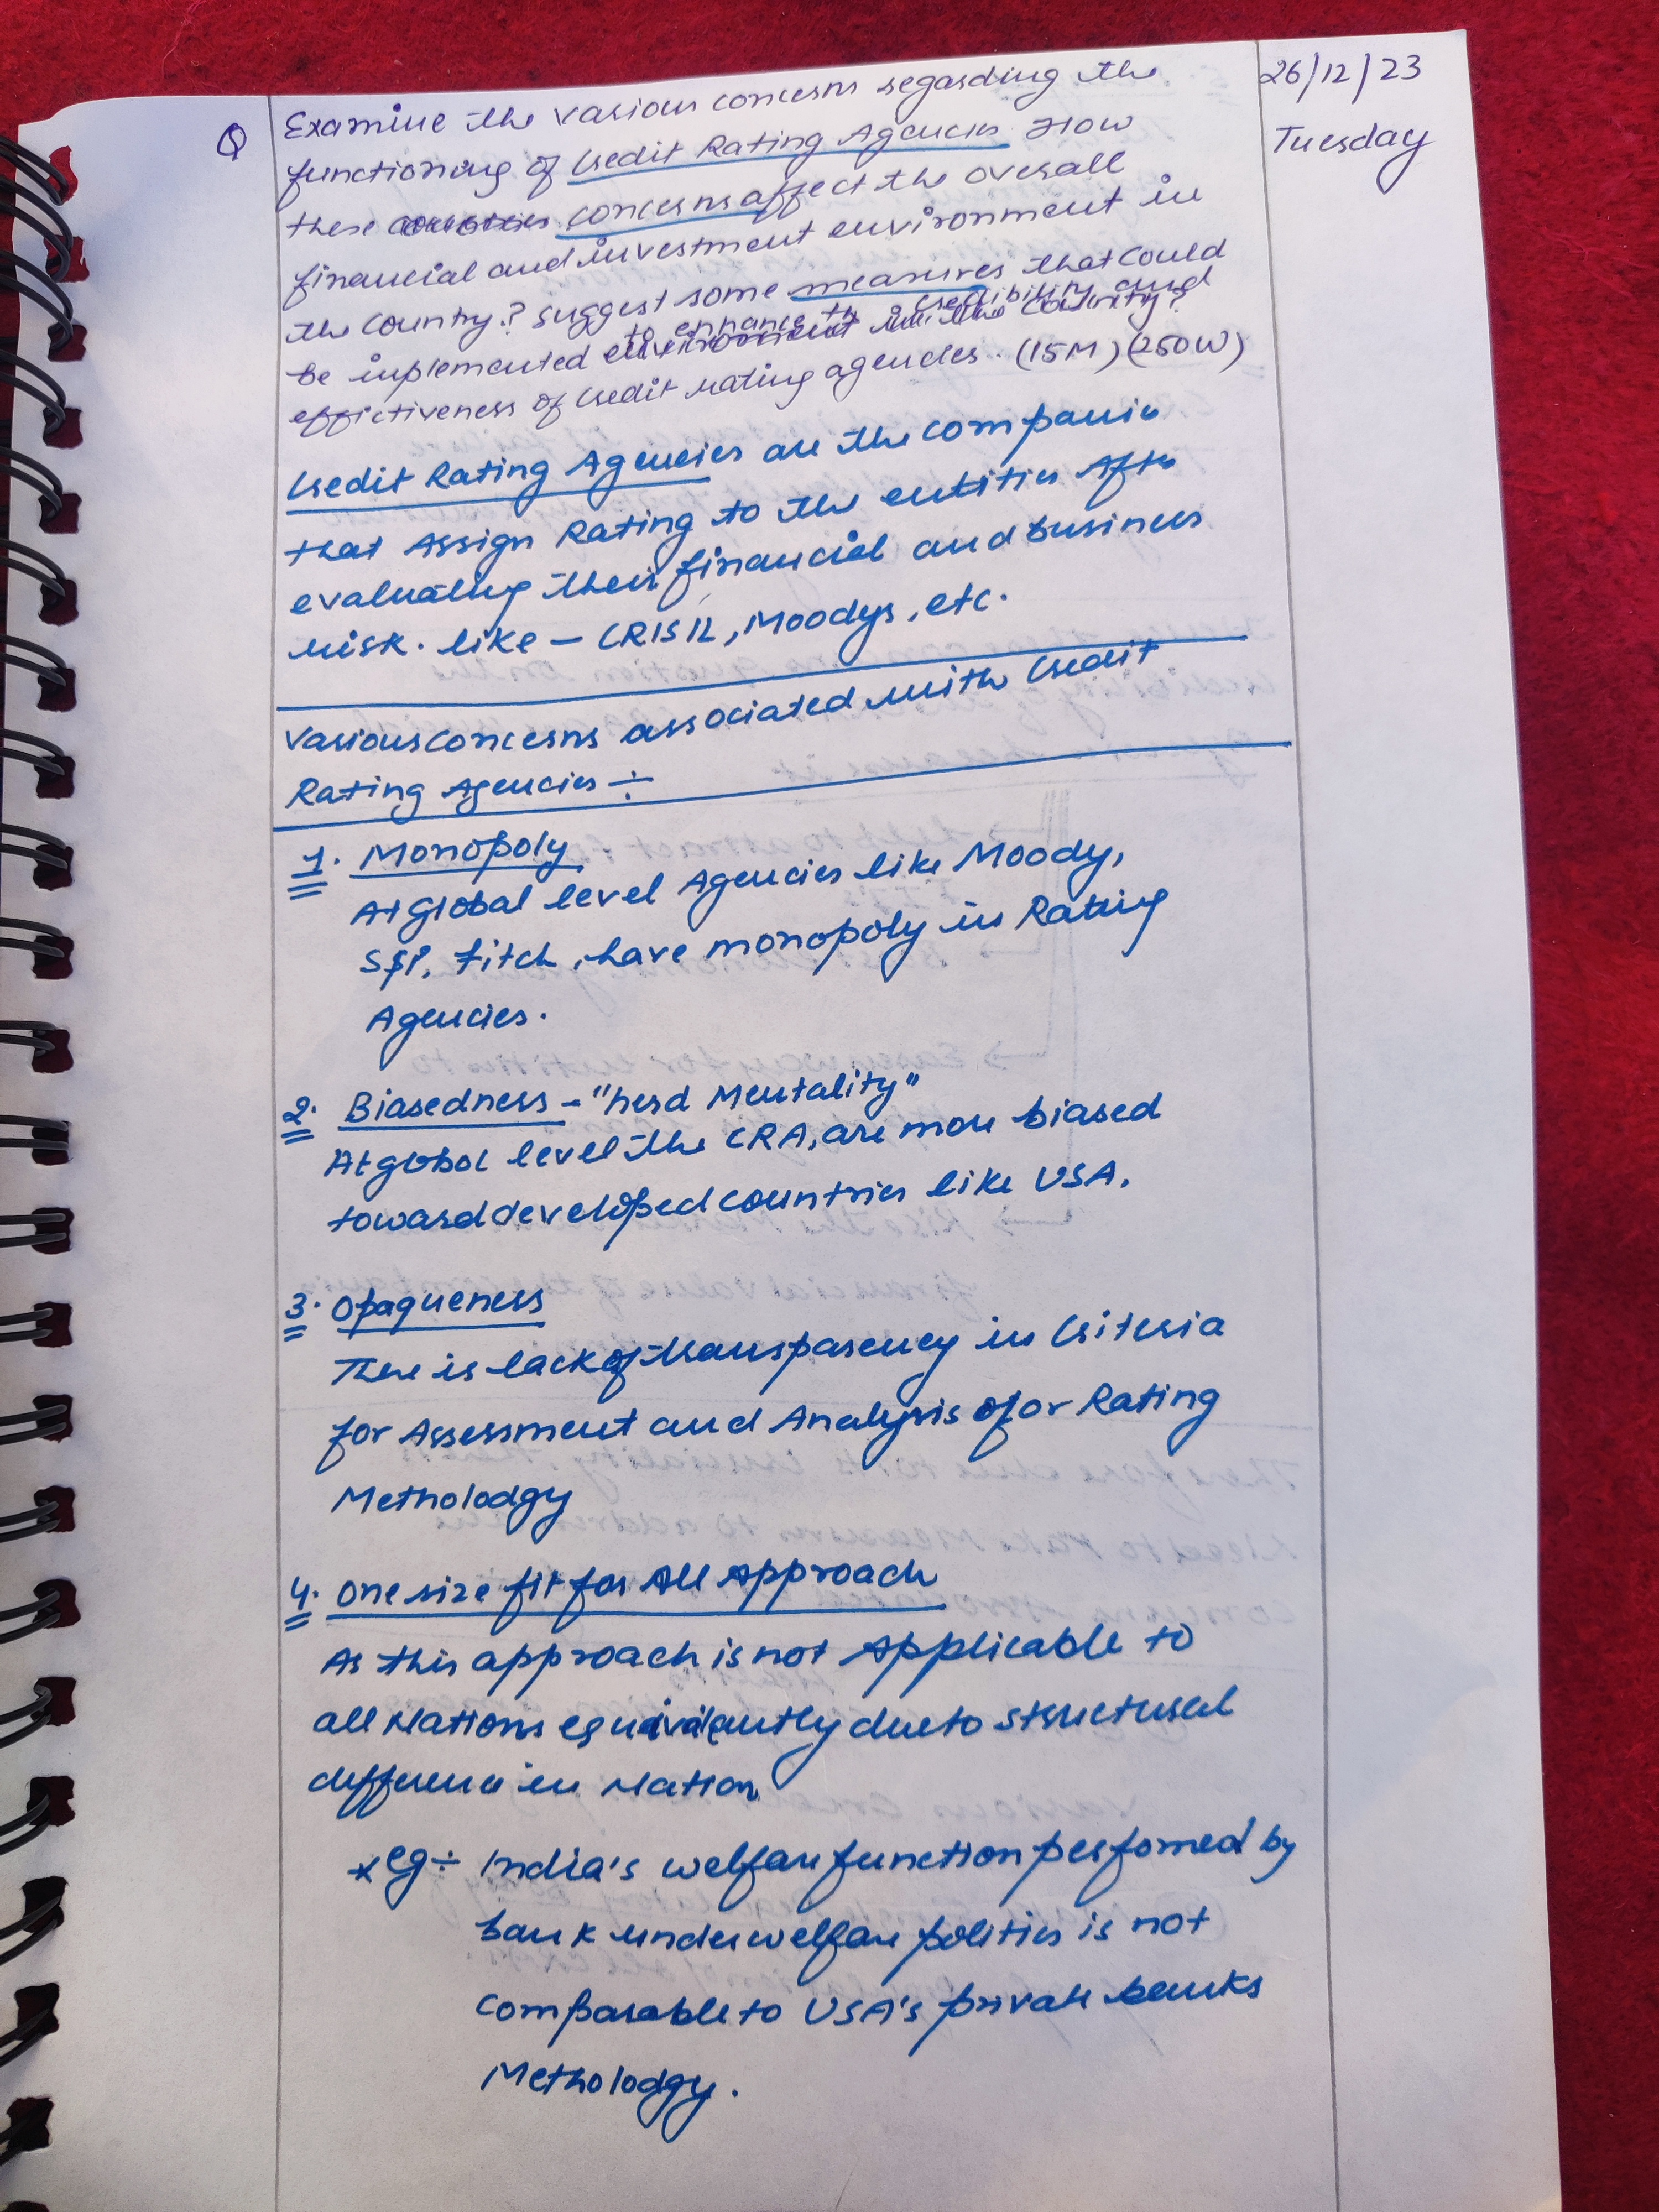 26/12/23
Tuesday
Q Examine the various concerns regarding the
functioning of Credit Rating Agencies. How
these concerns affect the overall
financial and investment environment in
the country? Suggest some measures that could
be implemented to enhance the credibility and
effictiveness of Credit rating agencies. (15M) (250W)
Credit Rating Agencies are the companies
that Assign Rating to the entities After
evaluating their financial and business
risk. like – CRISIL, Moodys, etc.
Various concerns associated with Credit
Rating Agencies ÷
1. Monopoly
At global level Agencies like Moody,
S&P, Fitch, have monopoly in Rating
Agencies.
2. Biasedness – "herd Mentality"
At global level the CRA, are more biased
toward developed countries like USA.
3. Opaqueness
There is lack of transparency in Criteria
for Assessment and Analysis of or Rating
Metholodgy
4. One size fit for All Approach
As this approach is not Applicable to
all Nations equivalently due to structural
difference in Nation
* eg ÷ India's welfare function perfomed by
bank under welfare politics is not
comparable to USA's private banks
Metholodgy.